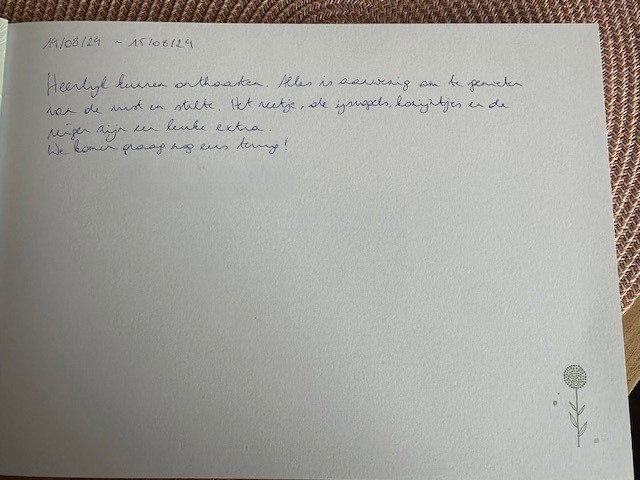 14/08/24 - 15/08/24
Heerlijk kunnen onthaasten. Alles is aanwezig om te genieten
van de rust en stilte. Het reetje, de ijsvogels, konijntjes en de
reiger zijn een leuke extra.
We komen graag nog eens terug!